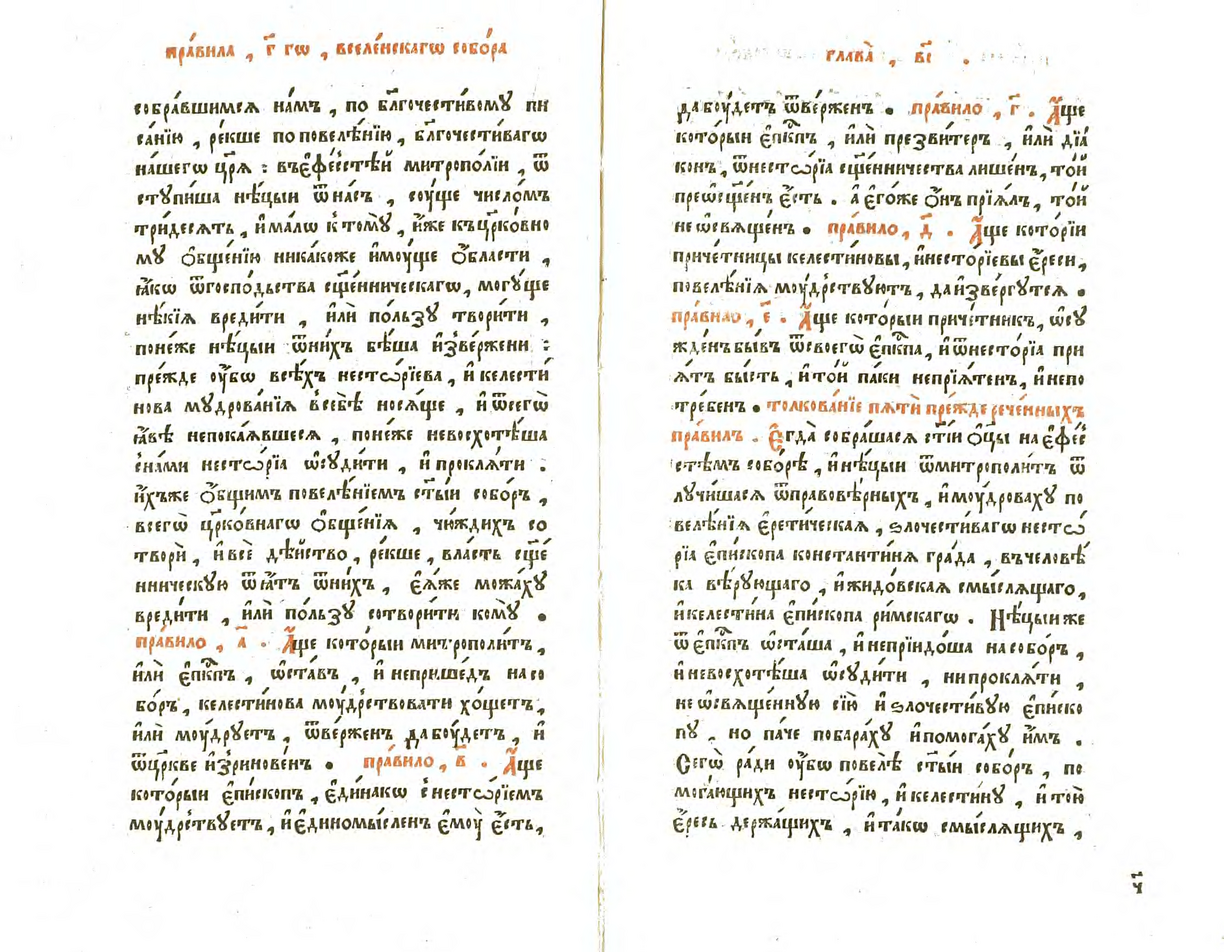 пра́вила , г҃ гѡ , вселе́нскагѡ собо́ра
собра́вшимсѧ на́мъ , по бл҃гочести́вомꙋ пи
са́нїю , ре́кше по повелѣ́нїю , бл҃гочести́вагѡ
на́шегѡ цр҃ѧ̀ : въ є҆фе́сстѣй митропо́лїи , ѿ
стꙋпи́ша нѣ́цыи ѿ на́съ , сꙋ́ще число́мъ
три́десѧть , и҆ ма́лѡ к томꙋ̀ , и҆́же къ цр҃ко́вно
мꙋ ѻ҆бще́нїю ника́коже и҆мꙋ́ще ѻ҆́бласти ,
ꙗ҆́кѡ ѿ госпо́дьства сщ҃е́нническагѡ , могꙋ́ще
нѣ́кїѧ вреди́ти , и҆лѝ по́льзꙋ твори́ти ,
поне́же нѣ́цыи ѿ ни́хъ бѣ́ша и҆зве́ржени :
пре́жде оу҆́бѡ всѣ́хъ несто́рїева , и҆ келести́
нова мꙋдрова́нїѧ в себѣ̀ носѧ́ще , и҆ ѿ сегѡ̀
ꙗ҆́вѣ непока́ѧвшесѧ , поне́же невосхотѣ́ша
с на́ми несто́рїа ѡ҆сꙋди́ти , и҆ проклѧ́ти :
и҆́хъже ѻ҆́бщимъ повелѣ́нїемъ ст҃ы́и собо́ръ ,
всегѡ̀ цр҃ко́внагѡ ѻ҆бще́нїѧ , чю́ждихъ со
творѝ , и҆ всѐ дѣ́йство , ре́кше , вла́сть сщ҃е́
нническꙋю ѿѧ́тъ ѿ ни́хъ , є҆ѧ́же можа́хꙋ
вреди́ти , и҆лѝ по́льзꙋ сотвори́ти комꙋ̀ .
пра́вило , а҃ . А҆́ще которыи митрополи́тъ ,
и҆лѝ є҆пⷭ҇кпъ , ѡ҆ста́въ , и҆ неприше́дъ на со
бо́ръ , келести́нова моу́дрствовати хо́щетъ ,
и҆лѝ моу́дрꙋетъ , ѿве́рженъ да боу́детъ , и҆
ѿ цр҃кве и҆зринове́нъ . пра́вило , в҃ . А҆́ще
которыи є҆пи́скопъ , є҆ди́накѡ с несто́рїемъ
моу́дрствꙋетъ , и҆ є҆диномы́сленъ є҆моу̀ є҆́сть ,
глава̀ , в҃і .
да боу́детъ ѿве́рженъ . пра́вило , г҃ . А҆́ще
кото́рыи є҆пⷭ҇кпъ , и҆лѝ презви́теръ , и҆лѝ дїа́
конъ , ѿ несто́рїа сщ҃е́нничества лише́нъ , то́й
преѡсщ҃е́нъ є҆́сть . а є҆го́же ѻ҆́нъ прїѧ́лъ , то́й
не ѡ҆свѧще́нъ . пра́вило , д҃ . А҆́ще кото́рїи
приче́тницы келести́новы , и҆ несто́рїевы є҆́реси ,
повелѣ́нїѧ моу́дрствꙋютъ , да и҆зве́ргꙋтсѧ .
пра́вило , є҃ . А҆́ще которыи приче́тникъ , ѡ҆сꙋ
жде́нъ бы́въ ѿ своегѡ̀ є҆пⷭ҇кпа , и҆ ѿ несто́рїа при
ѧ́тъ бы́сть , и҆ то́й па́ки непрїѧ́тенъ , и҆ непо
тре́бенъ . толкова́нїе пѧтѝ пре́жде рече́нныхъ
пра́вилъ . Є҆гда̀ собра́шасѧ ст҃і́и ѻ҆ц҃ы̀ на є҆фе́с
стѣмъ собо́рѣ , и҆ нѣ́цыи ѿ митрополи́тъ ѿ
лꙋчи́шасѧ ѿ правовѣ́рныхъ , и҆ моу́дровахꙋ по
велѣ́нїѧ є҆рети́ческаѧ , ѕлочести́вагѡ несто́
рїа є҆пи́скопа константи́нѧ гра́да , въ человѣ́
ка вѣ́рꙋющаго , и҆ жидо́вскаѧ смы́слѧщаго ,
и҆ келести́на є҆пи́скопа ри́мскагѡ . Нѣ́цыи же
ѿ є҆пⷭ҇кпъ ѡ҆ста́ша , и҆ непрїидо́ша на собо́ръ ,
и҆ невосхотѣ́ша ѡ҆сꙋди́ти , ни проклѧ́ти ,
не ѡ҆свѧще́ннꙋю сїю̀ и҆ ѕлочести́вꙋю є҆пи́ско
пꙋ , но па́че побара́хꙋ и҆ помога́хꙋ и҆̀мъ .
Сегѡ̀ ра́ди оу҆́бѡ повелѣ̀ ст҃ы́и собо́ръ , по
мога́ющихъ несто́рїю , и҆ келести́нꙋ , и҆ то́ю
є҆́ресь держа́щихъ , и҆ та́кѡ смы́слѧщихъ ,
ч҃